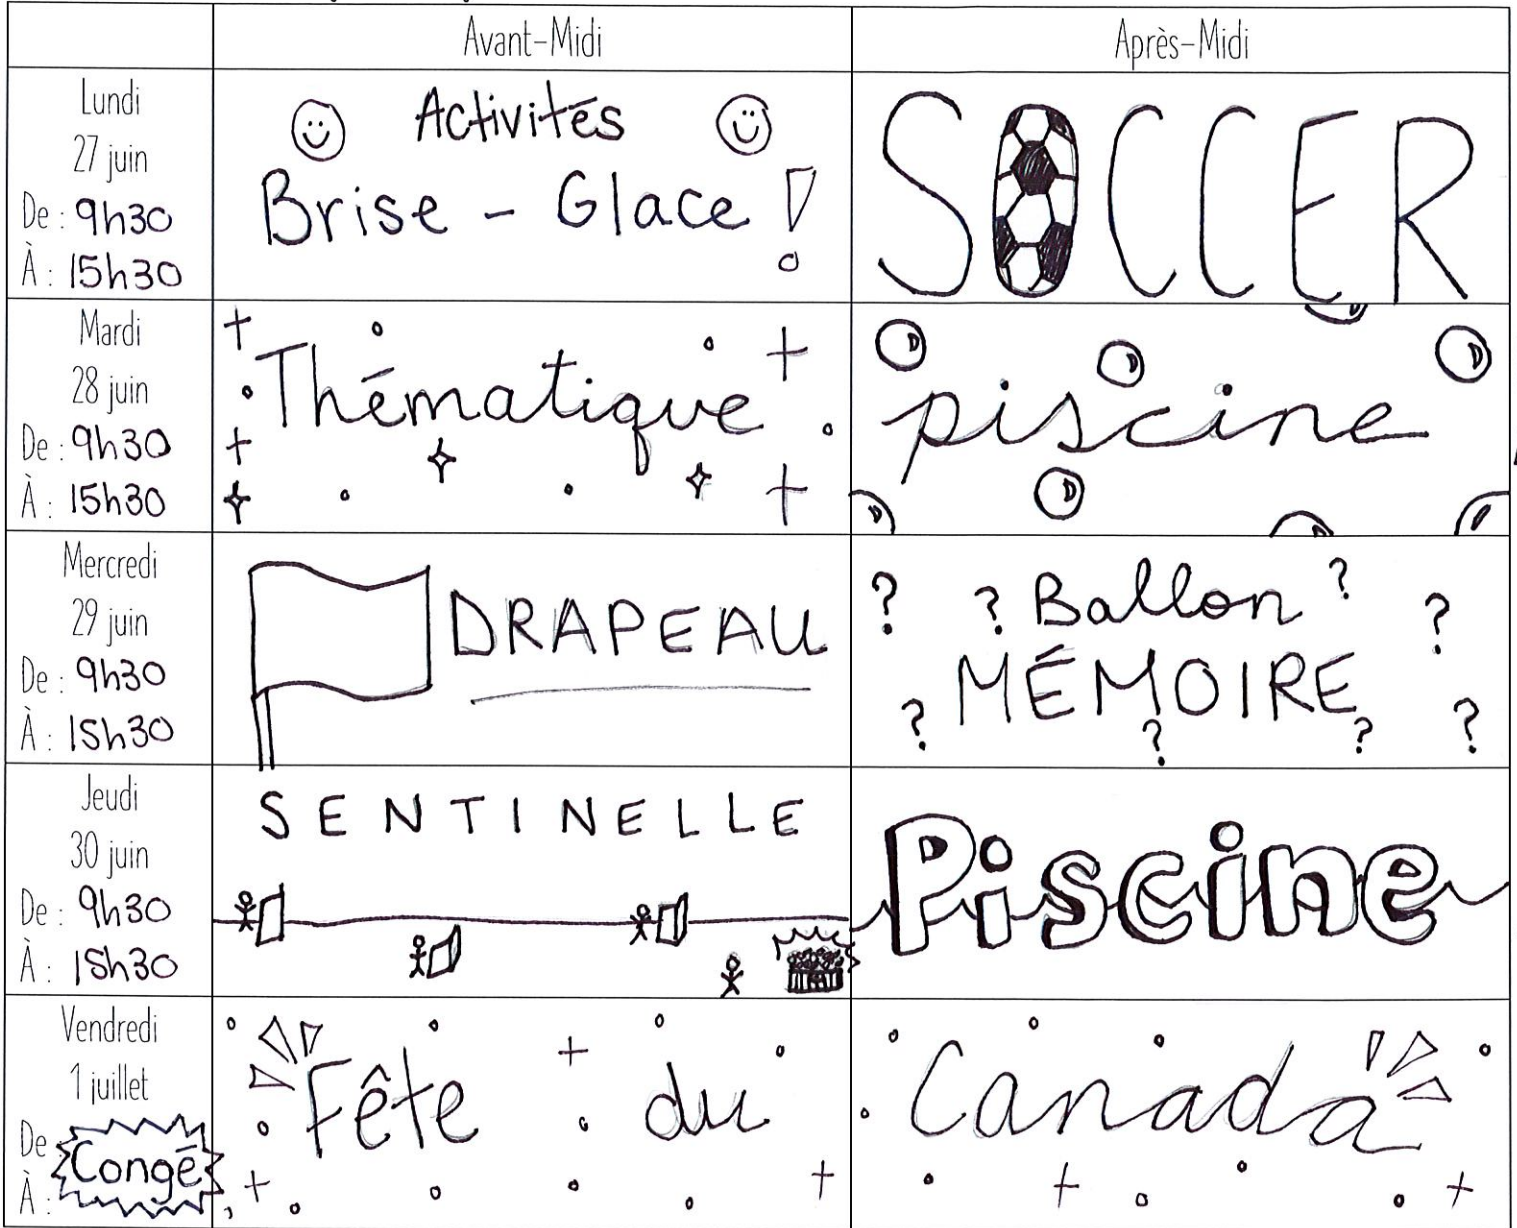 Avant-Midi
Après-Midi
Lundi
27 juin
De : 9h30
À : 15h30
Activités
Brise - Glace !
SOCCER
Mardi
28 juin
De : 9h30
À : 15h30
Thématique
piscine
Mercredi
29 juin
De : 9h30
À : 15h30
DRAPEAU
? ? Ballon ? ?
MÉMOIRE
? ? ? ?
Jeudi
30 juin
De : 9h30
À : 15h30
SENTINELLE
Piscine
Vendredi
1 juillet
De :
Congé
À :
Fête du
Canada